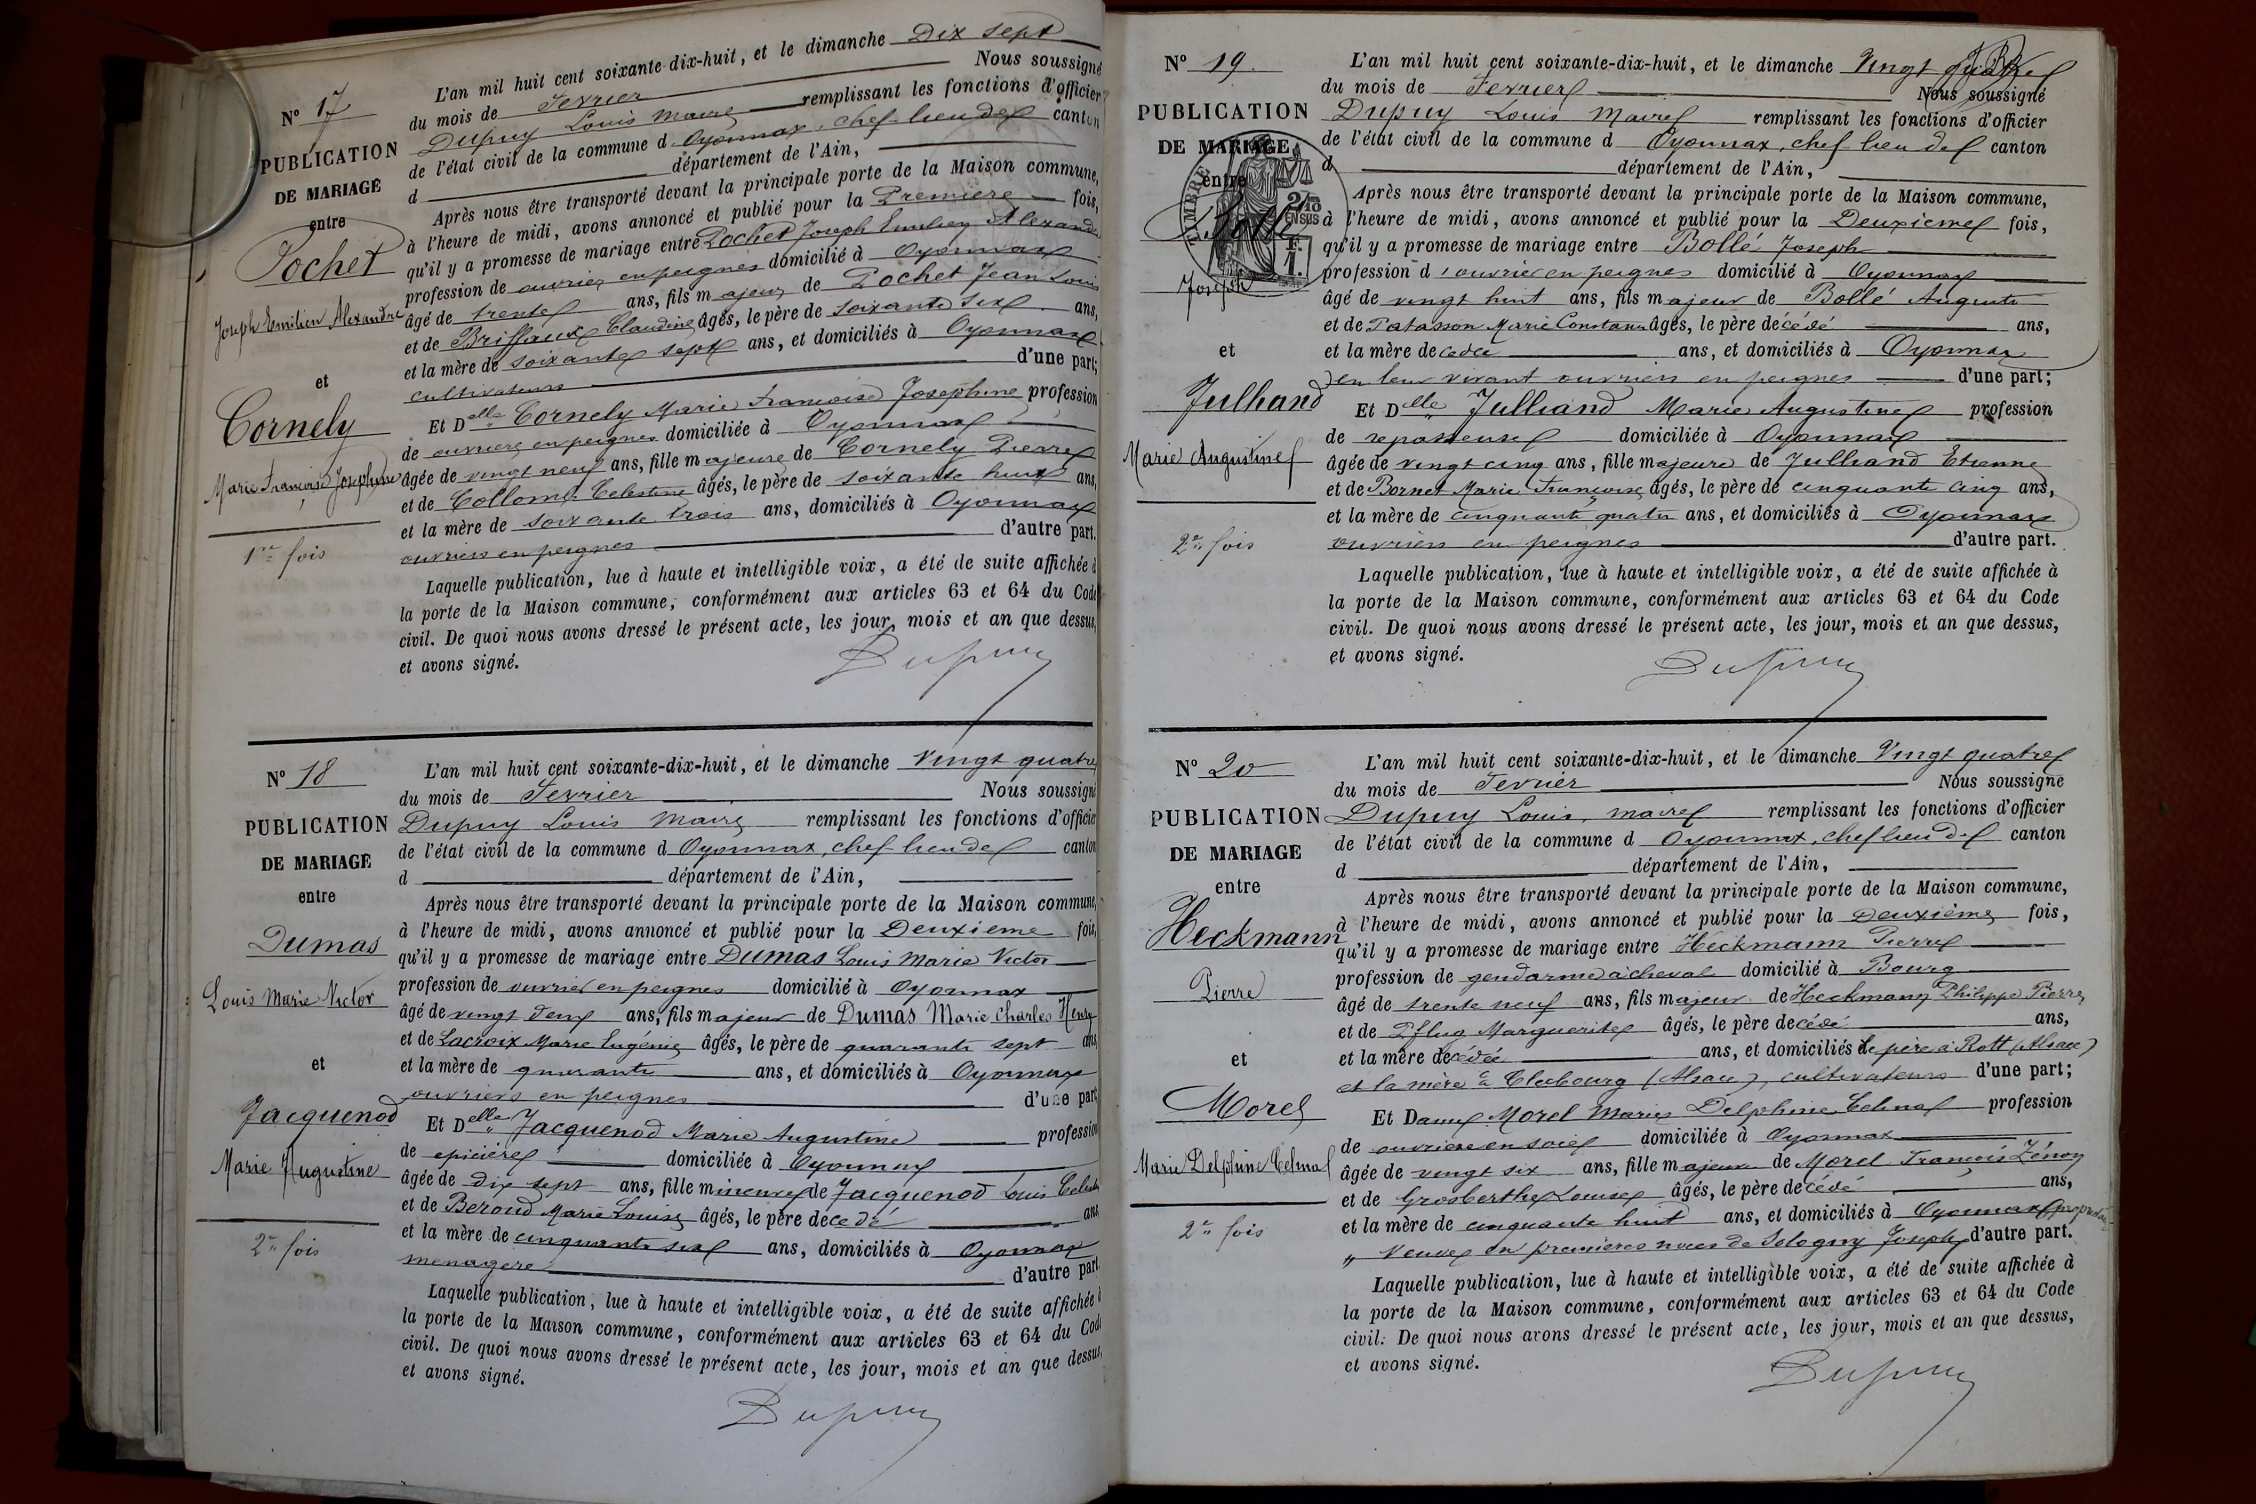 N° 17
PUBLICATION
DE MARIAGE
entre
Pochet
Joseph Emilien Alexandre
et
Cornely
Marie Françoise Josephine
1re fois
L'an mil huit cent soixante-dix-huit, et le dimanche Dix sept
du mois de Fevrier Nous soussigné
Dupuy Louis Maire remplissant les fonctions d'officier
de l'état civil de la commune d Oyonnax, chef-lieu de canton
d département de l'Ain,
Après nous être transporté devant la principale porte de la Maison commune,
à l'heure de midi, avons annoncé et publié pour la Premiere fois,
qu'il y a promesse de mariage entre Pochet Joseph Emilien Alexandre
profession de ouvrier en peignes domicilié à Oyonnax
âgé de trente ans, fils majeur de Pochet Jean Louis
et de Briffaux Claudine âgés, le père de soixante six ans,
et la mère de soixante sept ans, et domiciliés à Oyonnax
cultivateurs d'une part;
Et Delle Cornely Marie Francoise Josephine profession
de ouvriere en peignes domiciliée à Oyonnax
âgée de vingt neuf ans, fille majeure de Cornely Pierre
et de Collomb Celestine âgés, le père de soixante huit ans,
et la mère de soixante trois ans, domiciliés à Oyonnax
ouvriers en peignes d'autre part.
Laquelle publication, lue à haute et intelligible voix, a été de suite affichée à
la porte de la Maison commune, conformément aux articles 63 et 64 du Code
civil. De quoi nous avons dressé le présent acte, les jour, mois et an que dessus,
et avons signé.
Dupuy
N° 18
PUBLICATION
DE MARIAGE
entre
Dumas
Louis Marie Victor
et
Jacquenod
Marie Augustine
2e fois
L'an mil huit cent soixante-dix-huit, et le dimanche Vingt quatre
du mois de Fevrier Nous soussigné
Dupuy Louis Maire remplissant les fonctions d'officier
de l'état civil de la commune d Oyonnax, chef-lieu de canton
d département de l'Ain,
Après nous être transporté devant la principale porte de la Maison commune,
à l'heure de midi, avons annoncé et publié pour la Deuxieme fois,
qu'il y a promesse de mariage entre Dumas Louis Marie Victor
profession de ouvrier en peignes domicilié à Oyonnax
âgé de vingt deux ans, fils majeur de Dumas Marie Charles Henry
et de Lacroix Marie Eugénie âgés, le père de quarante sept ans,
et la mère de quarante ans, et domiciliés à Oyonnax
ouvriers en peignes d'une part
Et Delle Jacquenod Marie Augustine profession
de epicière domiciliée à Oyonnax
âgée de dix sept ans, fille mineure de Jacquenod Louis Celestin
et de Beroud Marie Louise âgés, le père decedé ans
et la mère de cinquante six ans, domiciliés à Oyonnax
menagere d'autre part
Laquelle publication, lue à haute et intelligible voix, a été de suite affichée à
la porte de la Maison commune, conformément aux articles 63 et 64 du Code
civil. De quoi nous avons dressé le présent acte, les jour, mois et an que dessus,
et avons signé.
Dupuy
N° 19
PUBLICATION
DE MARIAGE
entre
Bollé
Joseph
et
Julliand
Marie Augustine
2e fois
TIMBRE
L'an mil huit cent soixante-dix-huit, et le dimanche Vingt quatre
du mois de Fevrier Nous soussigné
Dupuy Louis Maire remplissant les fonctions d'officier
de l'état civil de la commune d Oyonnax, chef lieu de canton
d département de l'Ain,
Après nous être transporté devant la principale porte de la Maison commune,
à l'heure de midi, avons annoncé et publié pour la Deuxieme fois,
qu'il y a promesse de mariage entre Bollé Joseph
profession d'ouvrier en peignes domicilié à Oyonnax
âgé de vingt huit ans, fils majeur de Bollé Auguste
et de Patasson Marie Constance âgés, le père décédé ans,
et la mère decedée ans, et domiciliés à Oyonnax
en leur vivant ouvriers en peignes d'une part;
Et Delle Julliand Marie Augustine profession
de repasseuse domiciliée à Oyonnax
âgée de vingt cinq ans, fille majeure de Julliand Etienne
et de Bornet Marie Françoise âgés, le père de cinquante cinq ans,
et la mère de cinquante quatre ans, et domiciliés à Oyonnax
ouvriers en peignes d'autre part.
Laquelle publication, lue à haute et intelligible voix, a été de suite affichée à
la porte de la Maison commune, conformément aux articles 63 et 64 du Code
civil. De quoi nous avons dressé le présent acte, les jour, mois et an que dessus,
et avons signé.
Dupuy
N° 20
PUBLICATION
DE MARIAGE
entre
Heckmann
Pierre
et
Morel
Marie Delphine Celina
2e fois
L'an mil huit cent soixante-dix-huit, et le dimanche Vingt quatre
du mois de Fevrier Nous soussigné
Dupuy Louis, maire remplissant les fonctions d'officier
de l'état civil de la commune d Oyonnax, chef lieu de canton
d département de l'Ain,
Après nous être transporté devant la principale porte de la Maison commune,
à l'heure de midi, avons annoncé et publié pour la Deuxième fois,
qu'il y a promesse de mariage entre Heckmann Pierre
profession de gendarme à cheval domicilié à Bourg
âgé de trente neuf ans, fils majeur de Heckmann Philippe Pierre
et de Pflug Marguerite âgés, le père décédé ans,
et la mère décédée ans, et domiciliés le père à Rott (Alsace)
et la mère à Cleebourg (Alsace), cultivateurs d'une part;
Et Dame Morel Marie Delphine Celina profession
de ouvriere en soie domiciliée à Oyonnax
âgée de vingt six ans, fille majeure de Morel François Zénon
et de Grosberthe Louise âgés, le père décédé ans,
et la mère de cinquante huit ans, et domiciliés à Oyonnax
Veuve en premieres noces de Sologny Joseph d'autre part.
Laquelle publication, lue à haute et intelligible voix, a été de suite affichée à
la porte de la Maison commune, conformément aux articles 63 et 64 du Code
civil. De quoi nous avons dressé le présent acte, les jour, mois et an que dessus,
et avons signé.
Dupuy